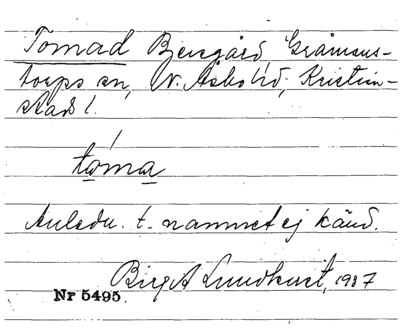 Tomad Bjersgård, Gråmans-
torps sn, N. Åsbo hd, Kristian-
stads l.
tóma
Anledn. t. namnet ej känd.
Birgit Lundkvist, 1937
Nr 5495